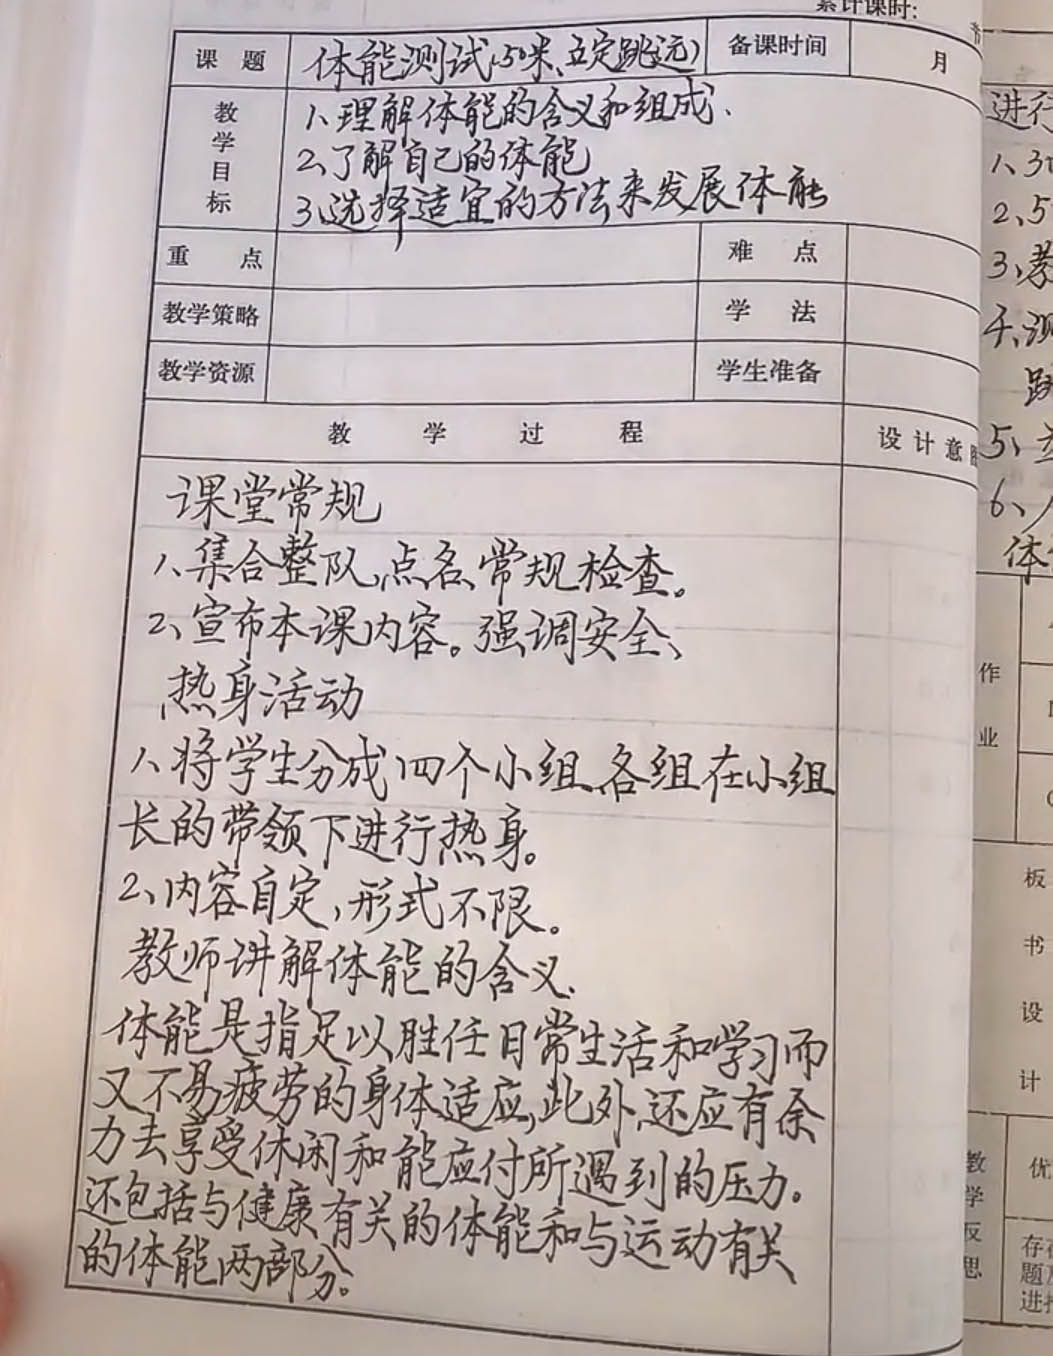 累计课时:
课 题 体能测试(50米、立定跳远) 备课时间 月
教学目标
1、理解体能的含义和组成、
2、了解自己的体能
3、选择适宜的方法来发展体能
重 点 难 点
教学策略 学 法
教学资源 学生准备
教 学 过 程 设计意图
课堂常规
1、集合整队,点名,常规检查。
2、宣布本课内容。强调安全、
热身活动
1、将学生分成四个小组,各组在小组
长的带领下进行热身。
2、内容自定,形式不限。
教师讲解体能的含义、
体能是指足以胜任日常生活和学习而
又不易疲劳的身体适应,此外,还应有余
力去享受休闲和能应付所遇到的压力。
还包括与健康有关的体能和与运动有关
的体能两部分。
进行
1、30
2、5
3、教
4、测
跳
5、
6、
体
作业
板书设计
教学反思
优
存在
题及
进